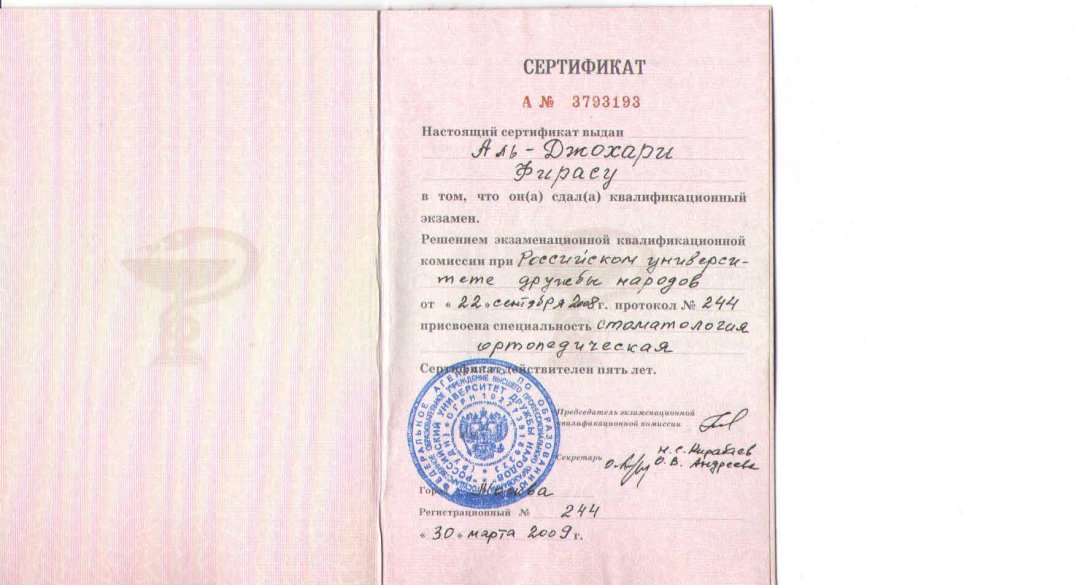 СЕРТИФИКАТ
А № 3793193
Настоящий сертификат выдан
Аль-Джохари
Фирасу
в том, что он(а) сдал(а) квалификационный
экзамен.
Решением экзаменационной квалификационной
комиссии при Российском универси-
тете дружбы народов
от « 22 » сентября 2008 г. протокол № 244
присвоена специальность стоматология
ортопедическая
Сертификат действителен пять лет.
Председатель экзаменационной
квалификационной комиссии
Н.С. Кирабаев
Секретарь О.В. Андреева
ФЕДЕРАЛЬНОЕ АГЕНТСТВО ПО ОБРАЗОВАНИЮ
РОССИЙСКИЙ УНИВЕРСИТЕТ ДРУЖБЫ НАРОДОВ
Город Москва
Регистрационный № 244
« 30 » марта 2009 г.